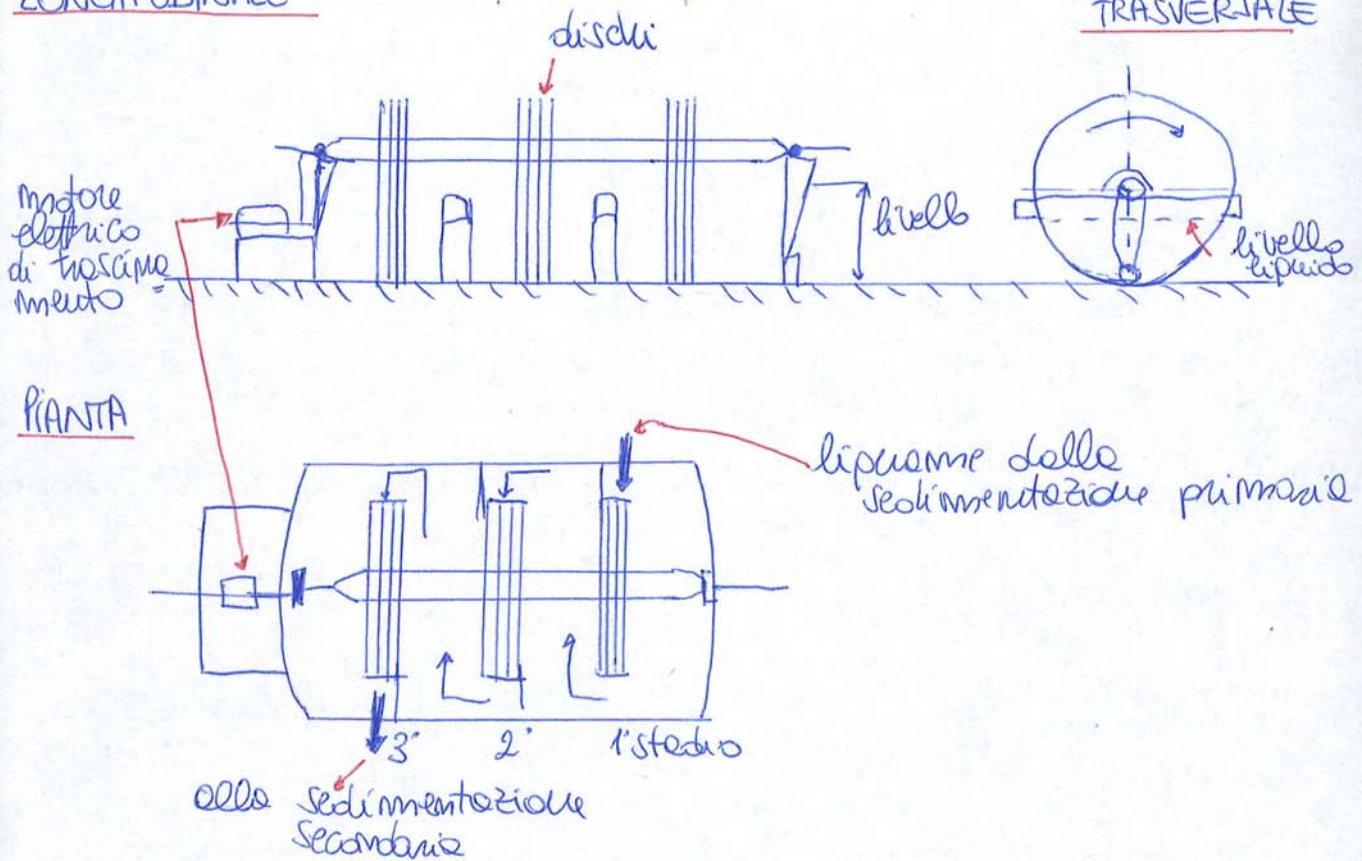 LONGITUDINALE
TRASVERSALE
dischi
motore
elettrico
di trascina
mento
livello
livello
liquido
PIANTA
liquame dalla
sedimentazione primaria
3° 2° 1° stadio
alla sedimentazione
secondaria